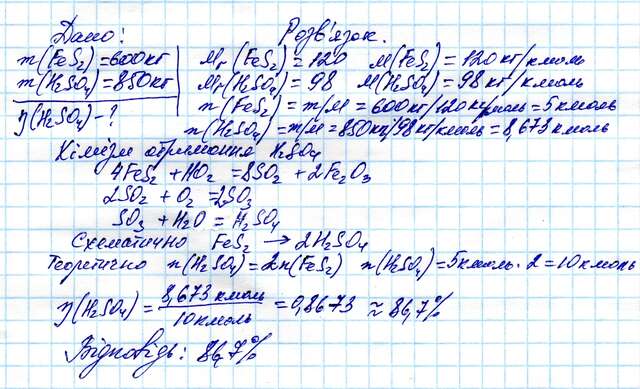 Дано:
Розв'язок.
m(FeS₂)=600кг
m(H₂SO₄)=850кг
η(H₂SO₄)-?
Mᵣ(FeS₂)=120 M(FeS₂)=120кг/кмоль
Mᵣ(H₂SO₄)=98 M(H₂SO₄)=98кг/кмоль
n(FeS₂)=m/M=600кг/120кг/кмоль=5кмоль
n(H₂SO₄)=m/M=850кг/98кг/кмоль=8,673кмоль
Хімізм отримання H₂SO₄
4FeS₂ + 11O₂ = 8SO₂ + 2Fe₂O₃
2SO₂ + O₂ = 2SO₃
SO₃ + H₂O = H₂SO₄
Схематично FeS₂ → 2H₂SO₄
Теоретично n(H₂SO₄)=2n(FeS₂) n(H₂SO₄)=5кмоль·2=10кмоль
η(H₂SO₄)=8,673кмоль/10кмоль=0,8673≈86,7%
Відповідь: 86,7%